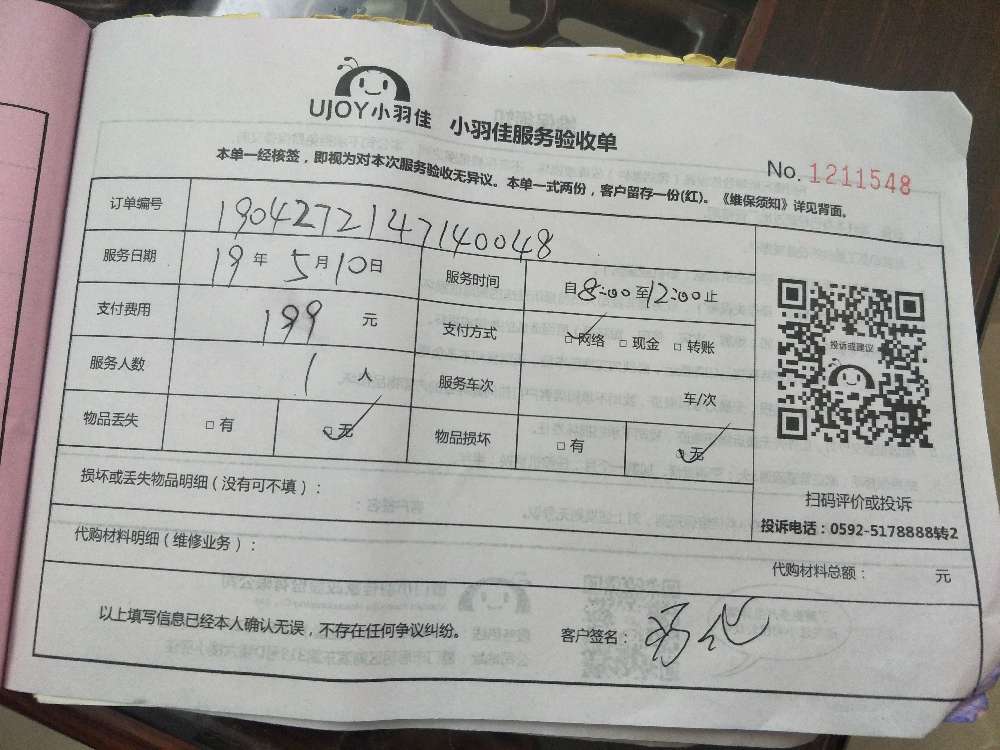 UJOY小羽佳 小羽佳服务验收单
No. 1211548
本单一经接签，即视为对本次服务验收无异议。本单一式两份，客户留存一份(红)。《维保须知》详见背面。
订单编号 1904272147140048
服务日期 19年5月10日 服务时间 自8:00至12:00止
支付费用 199 元 支付方式 □网络 □现金 □转账
服务人数 1 人 服务车次 车/次
物品丢失 □有 □无 物品损坏 □有 □无
投诉或建议
扫码评价或投诉
投诉电话：0592-5178888转2
损坏或丢失物品明细（没有可不填）：
代购材料明细（维修业务）：
代购材料总额： 元
以上填写信息已经本人确认无误，不存在任何争议纠纷。
客户签名：